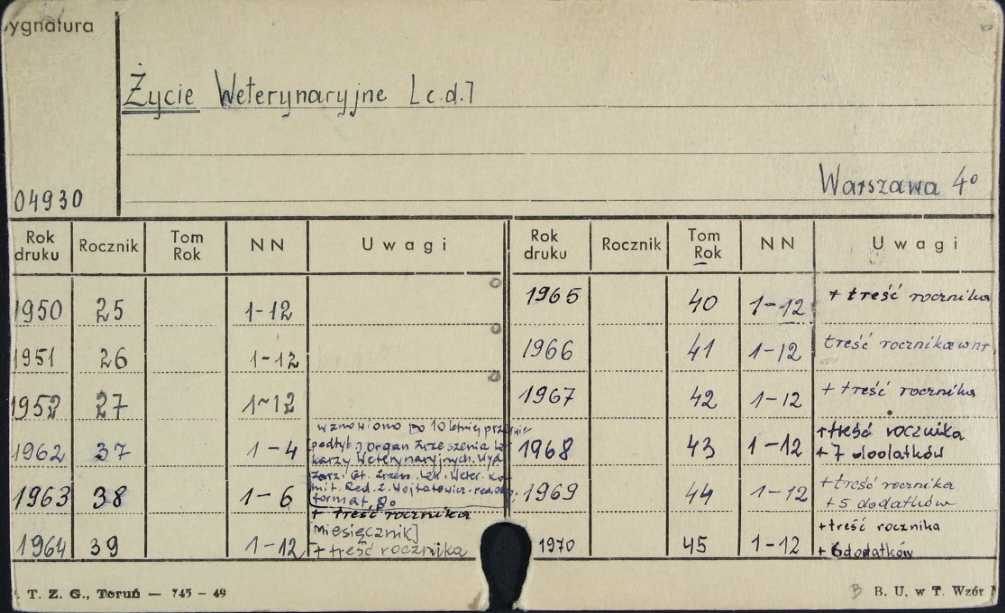 Sygnatura
Życie Weterynaryjne [c.d.]
04930
Warszawa 4°
Rok druku Rocznik Tom Rok NN Uwagi Rok druku Rocznik Tom Rok NN Uwagi
1950 25 1-12
1951 26 1-12
1952 27 1-12
1962 37 1-4 wznowiono po 10 letniej przerwie
podtyt.: organ Zrzeszenia Le
karzy Weterynaryjnych. Wyd.
Zarz. Gł. Zrzesz. Lek. Weter. Ko
mit. Red. Z. Wojtatowicz
format
1963 38 1-6 + treść rocznika
miesięcznik]
1964 39 1-12 + treść rocznika
1965 40 1-12 + treść rocznika
1966 41 1-12 treść rocznika w nr
1967 42 1-12 + treść rocznika
1968 43 1-12 + treść rocznika
+ 7 dodatków
1969 44 1-12 + treść rocznika
+ 5 dodatków
1970 45 1-12 + treść rocznika
+ 6 dodatków
T. Z. G., Toruń — 745 - 49
B B. U. w T. Wzór